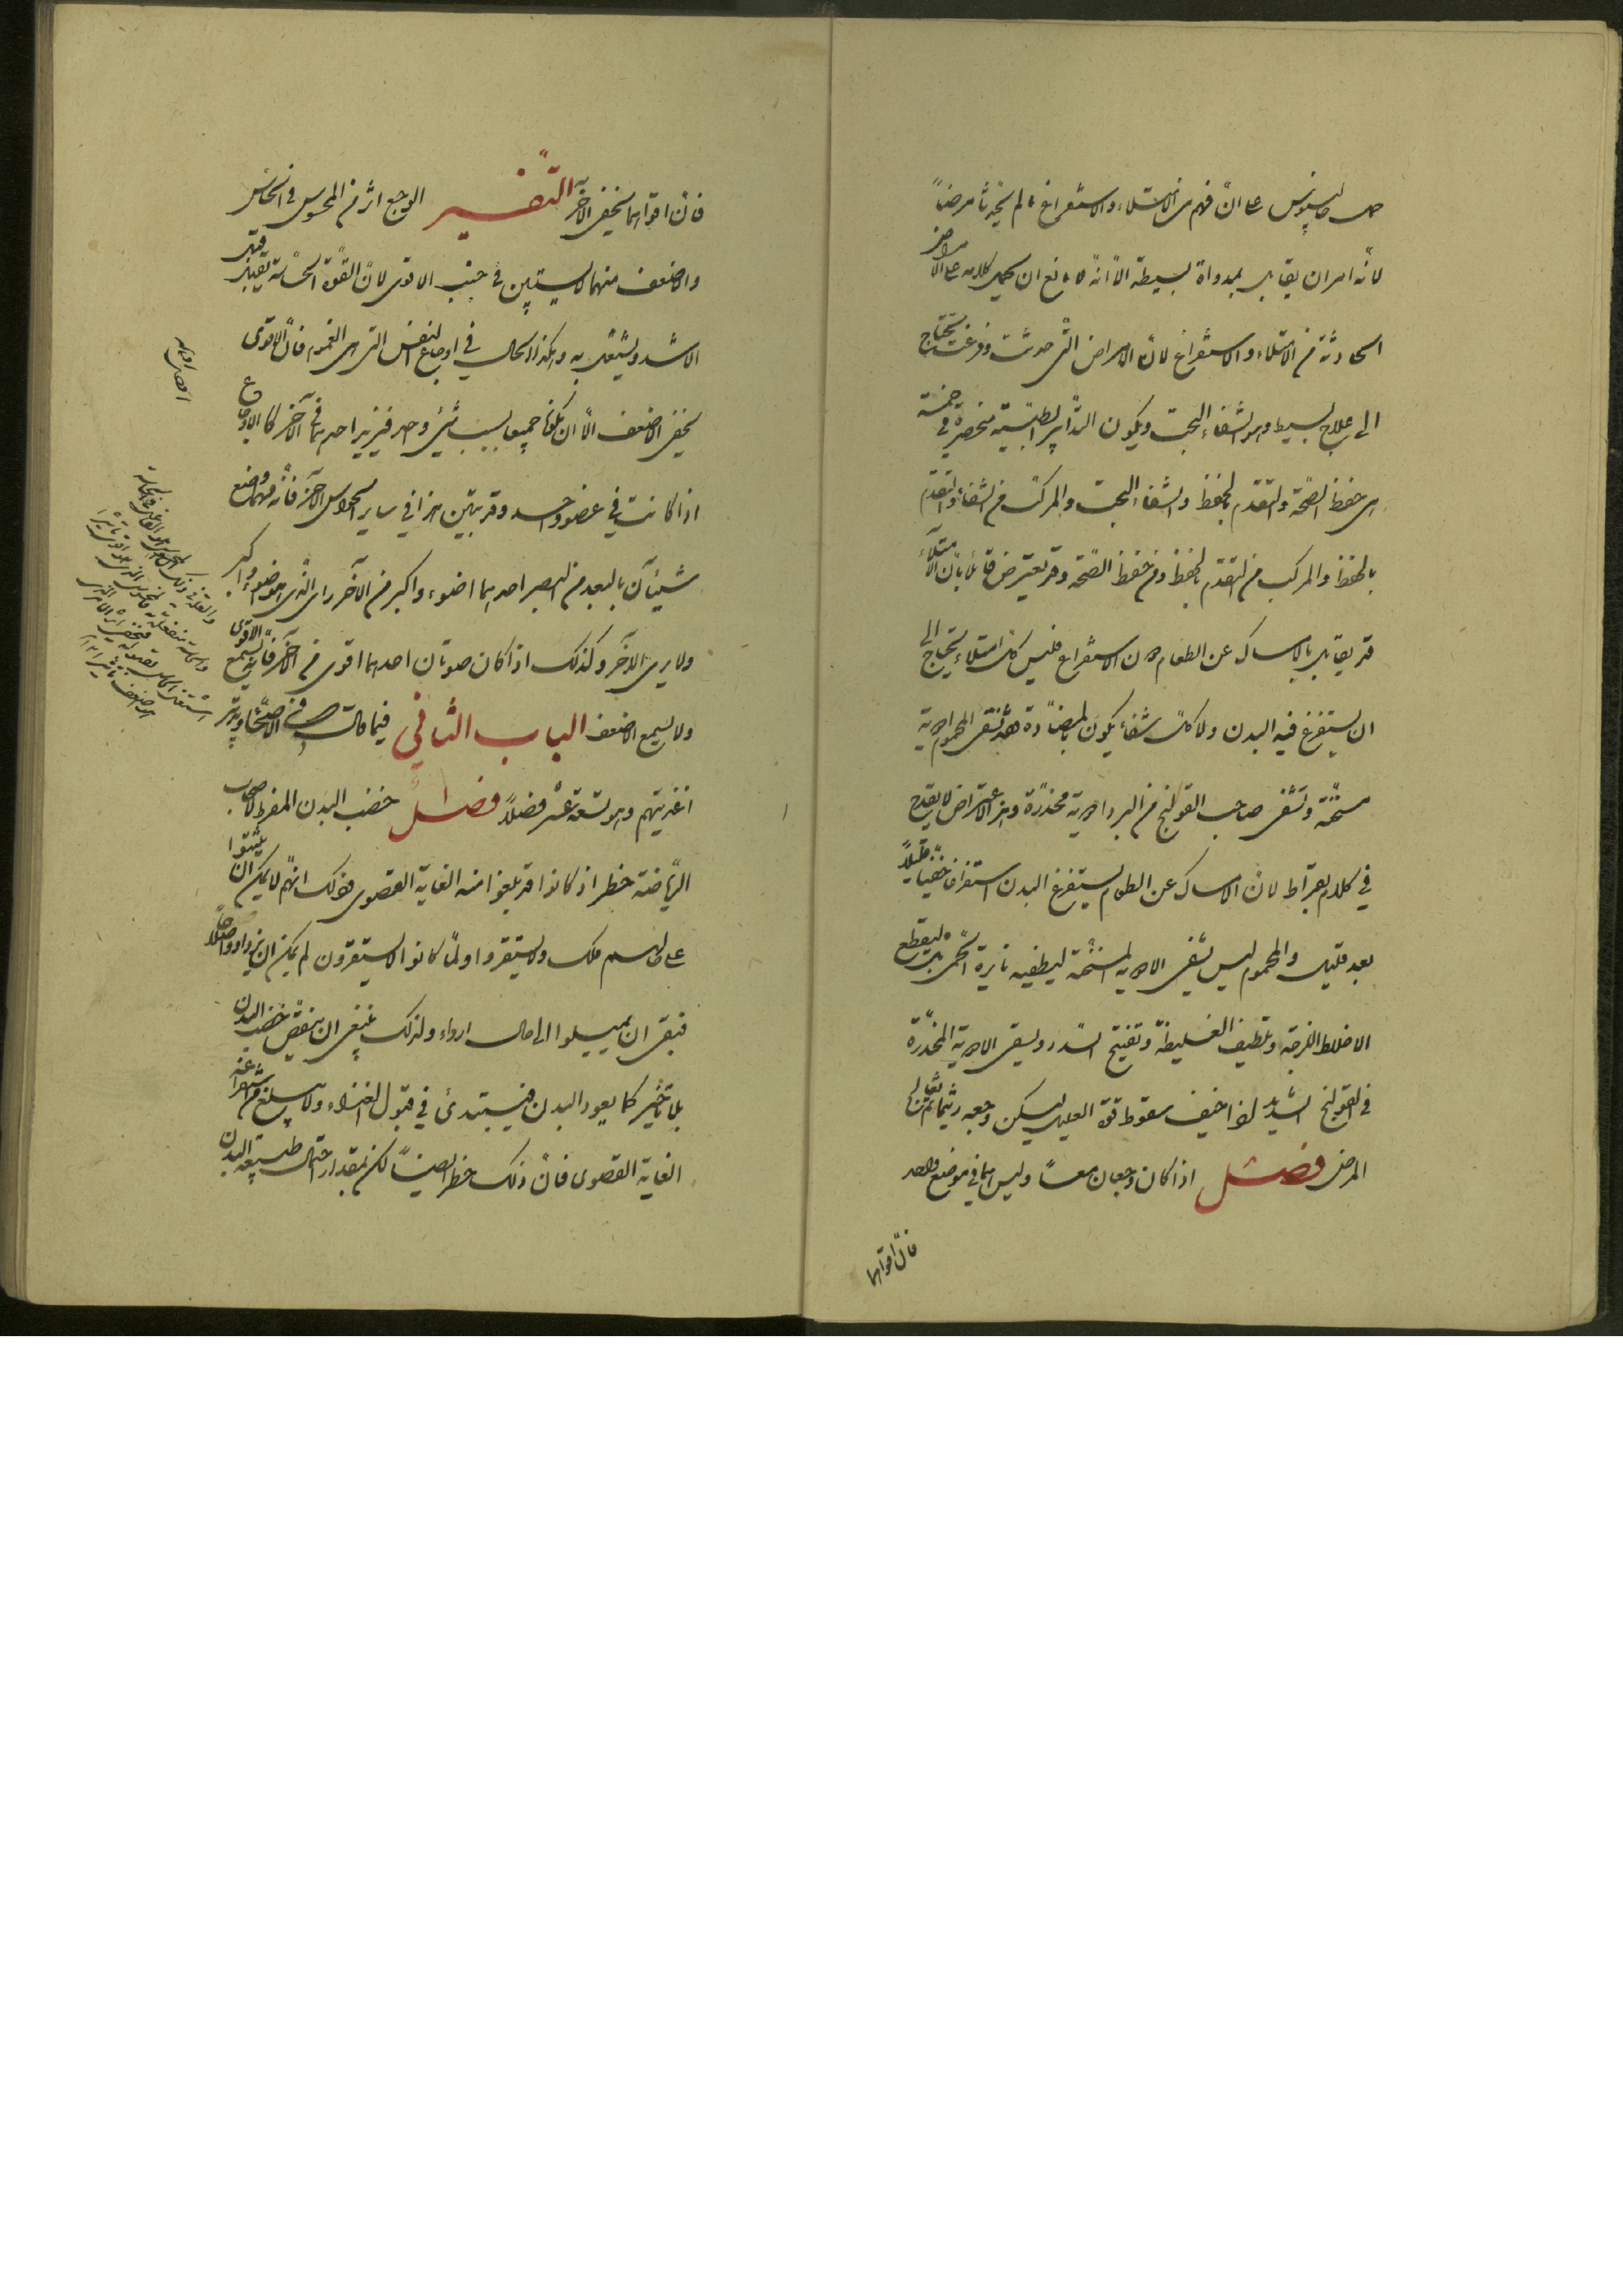 جالينوس على انّ فهم من الامتلاء والاستفراغ ما لم يحدثا مرضاً
لانّه امران يقابل بمداواة بسيطة الّا انّه لا مانع ان يحمل كلامه على الامراض
الحادثة من الامتلاء والاستفراغ لانّ الامراض الّتى حدثت وفرغت تحتاج
الى علاج بسيط وهو الشفاء البحت ويكون التدابير الطبّية منحصرة فى خمسة
هى حفظ الصّحّة والتقدّم بالحفظ والشفاء البحت والمركّب من الشفاء والتقدّم
بالحفظ والمركّب من التقدّم بالحفظ ومن حفظ الصّحّة وقد يعترض قائل بانّ الامتلاء
قد يقابل بالامساك عن الطعام دون الاستفراغ فليس كلّ امتلاء يحتاج الى
ان يستفرغ فيه البدن ولا كلّ شفاء يكون بالمضادّة فقد نسقى المحموم ادوية
مسخّنة ونسقى صاحب القولنج من البرد ادوية مخدّرة وهذا الاعتراض لا يقدح
فى كلام بقراط لانّ الامساك عن الطعام يستفرغ البدن استفراغاً خفيّاً قليلاً
بعد قليل والمحموم ليس يسقى الادوية المسخّنة ليطفيه نايرة الحمّى بل ليقطع
الاخلاط اللزجة وتلطيف الغليظة وتفتيح السّدد ويسقى الادوية المخدّرة
فى القولنج الشديد اذا خيف سقوط قوّة العليل ليسكن وجعه ريثما يقابل
المرض فصل اذا كان وجعان معاً وليس هما فى موضع واحد
فانّ اقواهما
فانّ اقواهما يخفى الآخر التّفسير الوجع اثر من المحسوس فى الحاسّ
والاضعف منهما لا يستبين فى جنب الاقوى لانّ القوّة الحسّاسة تقبل
الاشد وتشتغل به وهكذا الحال فى اوجاع النفس التى هى الغموم فانّ الاقوى
يخفى الاضعف الّا ان يكونا جميعاً بسبب شئ واحد فيزيد احدهما فى الآخر كالاوجاع
اذا كانت فى عضو واحد وقد يتبيّن هذا فى ساير الحواس الاخر فانّه مهما وضع
شيئان بالبعد من البصر احدهما اضوء واكبر من الآخر راى الّذى هو اضوء واكبر
ولا يرى الآخر وكذلك اذا كان صوتان احدهما اقوى من الآخر فانّه يسمع الاقوى
ولا يسمع الاضعف الباب الثانى فيما قال فى الاصحّاء وتدبير
اغذيتهم وهو تسعة عشر فصلاً فصل ا خصب البدن المفرط لاصحاب
الرّياضة خطر اذ كانوا قد بلغوا منه الغاية القصوى فذلك انّهم لا يمكن ان يثبتوا
على حالهم تلك ولا يستقرّوا ولمّا كانوا لا يستقرون لم يمكن ان يزدادوا صلاحاً
فبقى ان يميلوا الى حال اردأ ولذلك ينبغى ان ينقص خصب البدن
بلا تاخير كما يعود البدن فيبتدئ فى قبول الغذاء ولا يبلغ من استفراغه
الغاية القصوى فانّ ذلك خطر ايضاً لكن بمقدار احتمال طبيعة البدن